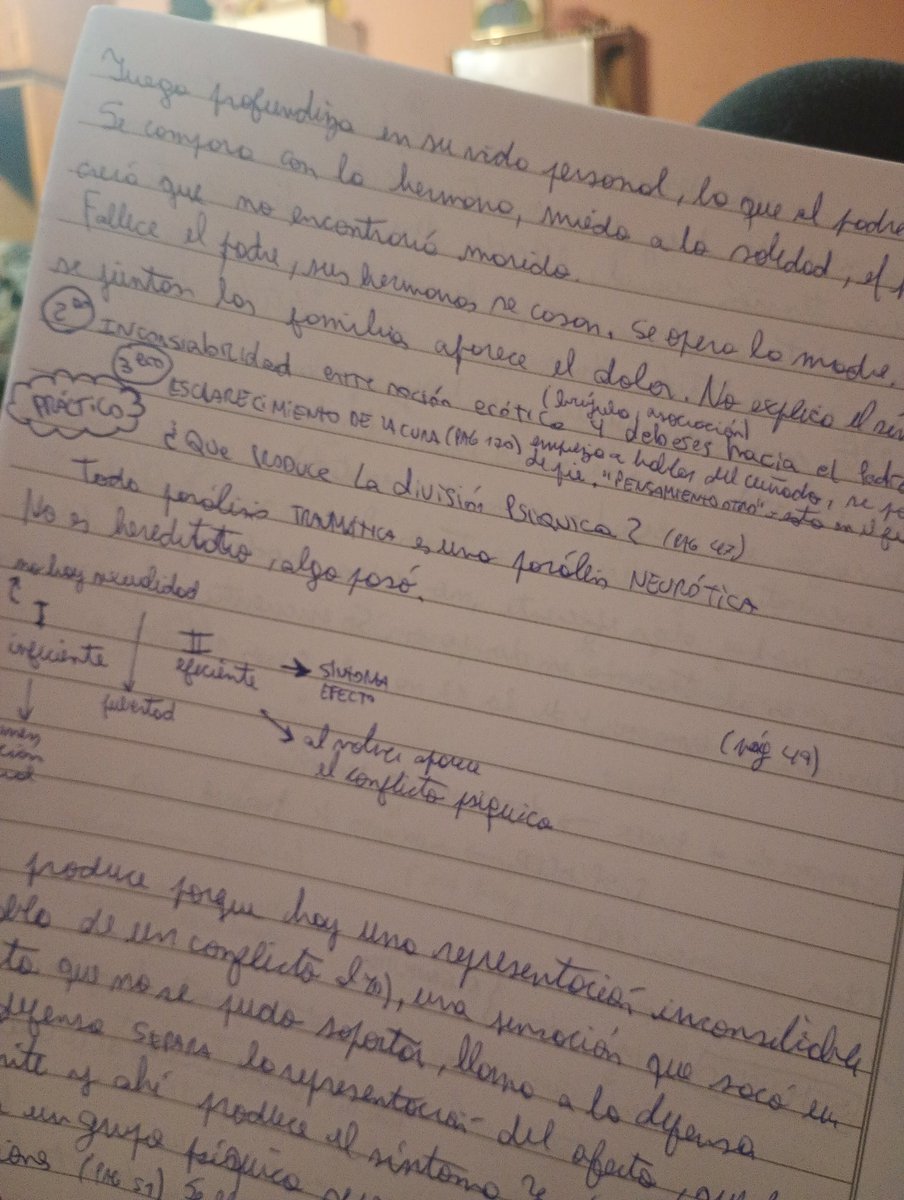 Luego profundiza en su vida personal, lo que el padre
Se compara con la hermana, miedo a la soledad, el
creía que no encontraría marido.
Fallece el padre, sus hermanas se casan. Se opera la madre.
se juntan las familia aparece el dolor. No explica el
2do INCONSIABILIDAD entre noción erótica y deberes hacia el Padre
(brújula, asociación)
3ero ESCLARECIMIENTO DE LA CURA (PAG 120) empezó a hablar del cuñado, se
de pie, "PENSAMIENTO OTRO"
PRÁCTICO
¿QUE PRODUCE LA DIVISIÓN PSIQUICA? (PAG 47)
Toda parálisis TRAMÁTICA es una parálisis NEURÓTICA
No es hereditatio, algo pasó.
no hay sexualidad
I
II
ineficiente
eficiente → SÍNTOMA
EFECTO
pubertad
al volver aparece
el conflicto psiquico
(pág 49)
produce porque hay una representación inconsilidble
de un conflicto, una sensación que sacó en
que no se pudo soportar, llama a la defensa
defensa SEPARA la representación del afecto,
y ahí produce el síntoma
un grupo psíquico
(PAG 51)